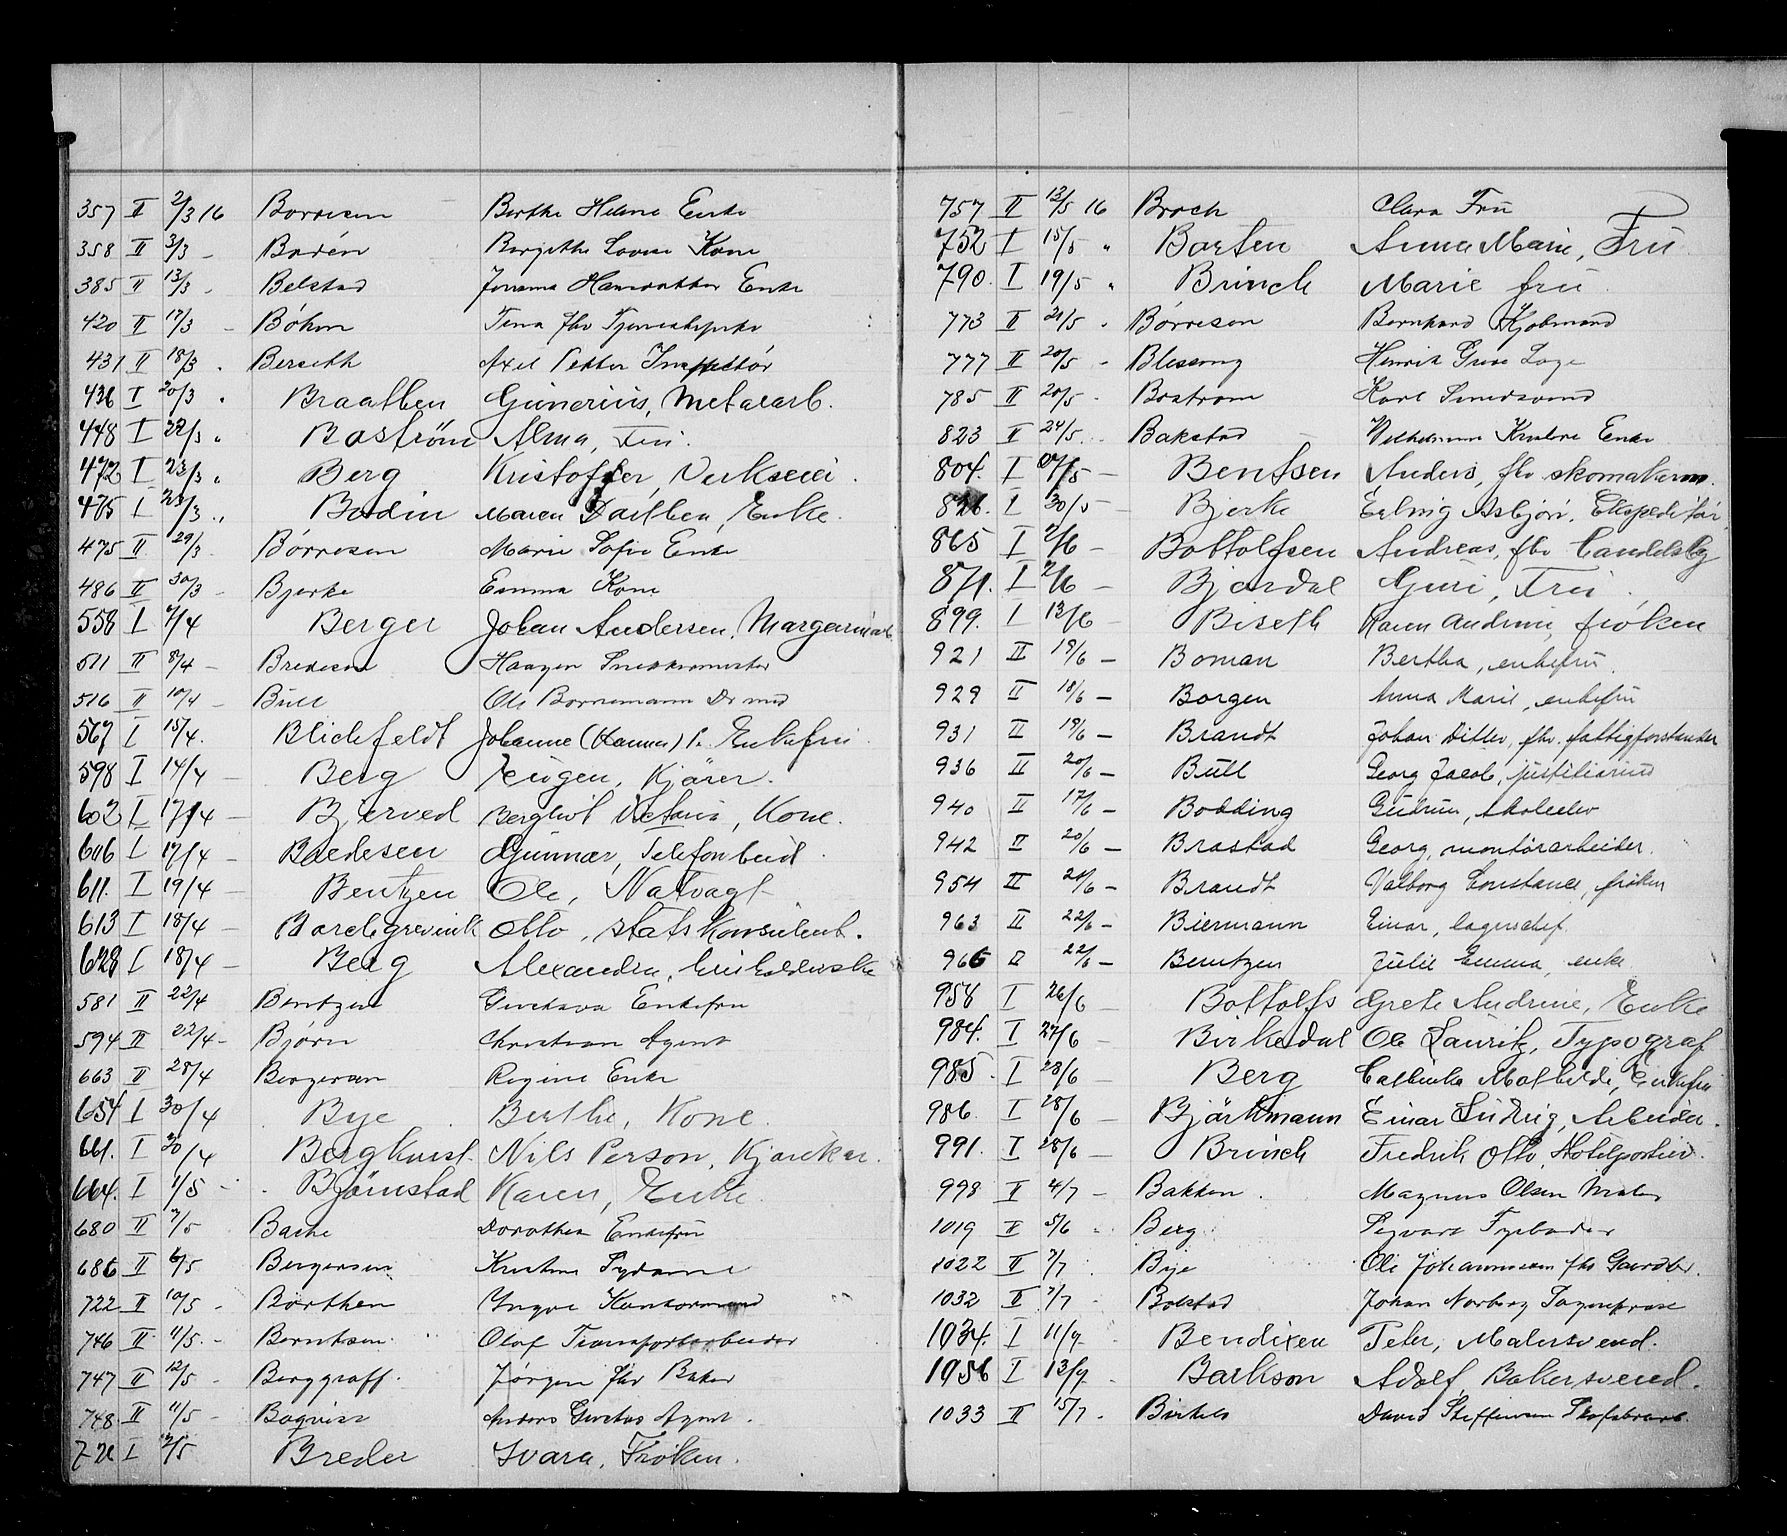 357 II 2/3 16 Borresen Berthe Helene Enke
358 II 3/3 - Bodén Bergithe Lovise Kone
385 II 13/3 - Belstad Johanna Enke
420 II 17/3 - Böhm Tina fhv
431 II 18/3 - Berseth Axel Petter Inspektør
436 I 20/3 " Braathen Gunerius, Metalarb.
448 I 22/3 " Boström Alma, Fru.
472 I 23/3 " Berg Kristoffer, Verkseier.
465 I 23/3 " Bodin Maren Dorthea, Enke.
475 II 29/3 Børresen Marie Sofie Enke
486 II 30/3 - Bjerke Emma Kone
558 I 7/4 Berger Johan Andersen, Margarinarb.
511 II 8/4 - Bredesen Haagen Snedkermester
516 II 10/4 - Bull Ole Bornemann Dr med
567 I 15/4. Blichfeldt Johanne (Hanna) P. Enkefru.
598 I 14/4 - Berg Eugen, Kjører.
602 I 17/4 - Bjerved Bergliot Victoria, Kone.
606 I 17/4 - Bredesen Gunnar, Telefonbud.
611. I 19/4 - Bentzen Ole, Natvagt
613 I 18/4 - Borchgrevink Otto, Statskonsulent.
628 I 18/4 - Berg Alexandra,
581 II 22/4 Berntzen Gustava Enkefru
594 II 22/4 - Bjørn Christian Agent
663 II 28/4 Bergersen Regine Enke
654 I 30/4 Bye Berthe, Kone.
661. I 30/4 Berghurst. Nils Person, Kjørekar.
664. I 1/5 - Bjørnstad Karen, Enke.
680 II 2/5 Bache Dorothea Enkefru
686 II 6/5 Bergersen Kristine Sydame
722 II 10/5 - Borthen Yngve Kontormand
746 II 11/5 - Berntsen Olaf Transportarbeider
747 II 12/5 - Berggraff. Jørgen fhv Baker
748 II 11/5 - Boqvist Anders Gustav Agent.
721 I 9/5 Breder Svara, Frøken.
757 II 12/5 16 Broch Clara Fru
752 I 15/5 " Barten Anna Marie, Fru
790. I 19/5 " Brinch Marie fru
773 II 21/5 - Børresen Bernhard Kjøbmand
777 II 20/5 - Blessing Henrik Læge
785 II 20/5 - Bostrøm Karl
823 II 24/5. Bakstad Vilhelmine Enke
804. I 27/5 - Bentsen Anders, fhv skomakerm.
826. I 30/5 - Bjerke Erling Asbjørn. Ekspeditør.
865 I 2/6 - Bottolfsen Andreas, fhv
871. I 2/6 - Bjerdal Guri, Fru.
899. I 13/6 - Biseth Karen Andrine, frøken
921 II 19/6 - Boman Bertha, enkefru.
929 II 18/6 - Borgen Anna Marie, enkefru
931 II 19/6 - Brandt Johan Ditlev, fhv. fattigforstander
936 II 20/6 - Bull Georg Jacob, justitiarius
940 II 17/6 - Bodding Gudrun, skoleelev
942 II 20/6 - Brastad Georg, montørarbeider.
954 II 21/6 - Brandt Valborg Constance, frøken
963 II 22/6 - Biermann Einar, lagerchef.
966 II 22/6 - Berntzen Julie Emma, enke
958 I 26/6 Bottolfs Grete Andrine, Enke
984. I 27/6 Birkedal Ole Lauritz, Typograf
985. I 28/6 Berg Cathinka Mathilde, Enkefru
986. I 28/6 - Björkmann Einar Ludvig, Arbeider.
991. I 28/6 - Brinch Fredrik Otto, Hotelportier.
998 II 4/7 - Bakken. Magnus Olsen Maler
1019 II 5/6 - Berg Sigvart Typbøder
1022 II 7/7 Bye Ole Johannesen fhv Gaardbr.
1032 II 7/7 - Bolstad Johan Norberg Sogneprest
1034. I 11/7 Bendixen Peter, Malersvend.
1056 I 13/7. Barkson Adolf, Bakersvend.
1033 II 15/7. Birkels David Steffensen Skofabrarb.